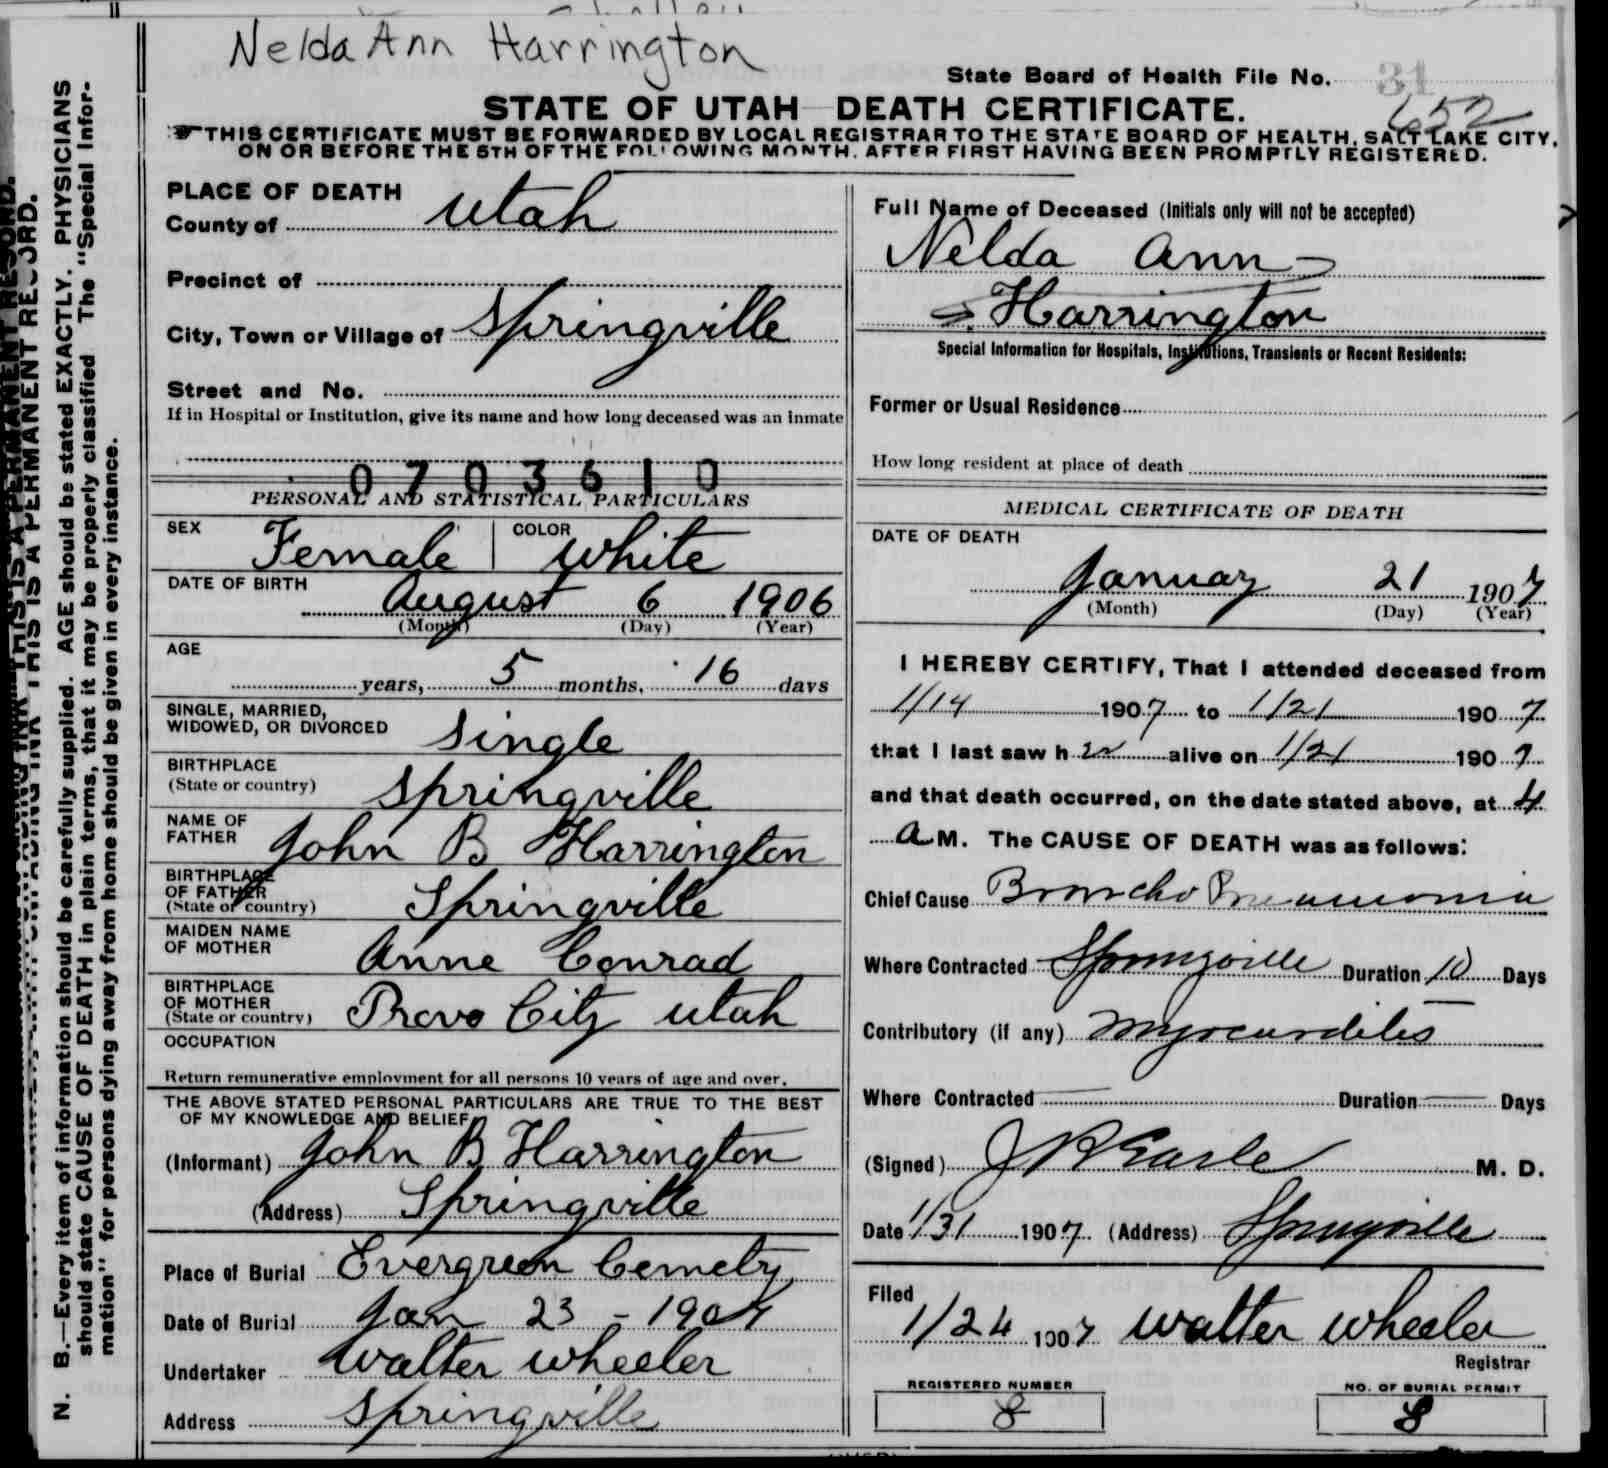 Nelda Ann Harrington
State Board of Health File No. 31
652
STATE OF UTAH DEATH CERTIFICATE.
THIS CERTIFICATE MUST BE FORWARDED BY LOCAL REGISTRAR TO THE STATE BOARD OF HEALTH, SALT LAKE CITY,
ON OR BEFORE THE 5TH OF THE FOLLOWING MONTH, AFTER FIRST HAVING BEEN PROMPTLY REGISTERED.
N. B.—Every item of information should be carefully supplied. AGE should be stated EXACTLY. PHYSICIANS
should state CAUSE OF DEATH in plain terms, that it may be properly classified The "Special Infor-
mation" for persons dying away from home should be given in every instance.
THIS IS A PERMANENT RECORD.
PLACE OF DEATH
County of Utah
Precinct of
City, Town or Village of Springville
Street and No.
If in Hospital or Institution, give its name and how long deceased was an inmate
0703610
PERSONAL AND STATISTICAL PARTICULARS
SEX Female COLOR White
DATE OF BIRTH August 6 1906
(Month) (Day) (Year)
AGE
years, 5 months, 16 days
SINGLE, MARRIED,
WIDOWED, OR DIVORCED Single
BIRTHPLACE
(State or country) Springville
NAME OF
FATHER John B Harrington
BIRTHPLACE
OF FATHER
(State or country) Springville
MAIDEN NAME
OF MOTHER Anne Conrad
BIRTHPLACE
OF MOTHER
(State or country) Provo City Utah
OCCUPATION
Return remunerative employment for all persons 10 years of age and over.
THE ABOVE STATED PERSONAL PARTICULARS ARE TRUE TO THE BEST
OF MY KNOWLEDGE AND BELIEF
(Informant) John B Harrington
(Address) Springville
Place of Burial Evergreen Cemetry
Date of Burial Jan 23 - 1907
Undertaker Walter Wheeler
Address Springville
Full Name of Deceased (Initials only will not be accepted)
Nelda Ann
Harrington
Special Information for Hospitals, Institutions, Transients or Recent Residents:
Former or Usual Residence
How long resident at place of death
MEDICAL CERTIFICATE OF DEATH
DATE OF DEATH
January 21 1907
(Month) (Day) (Year)
I HEREBY CERTIFY, That I attended deceased from
1/14 1907 to 1/21 1907
that I last saw her alive on 1/21 1907
and that death occurred, on the date stated above, at 4
A M. The CAUSE OF DEATH was as follows:
Chief Cause Broncho Pneumonia
Where Contracted Springville Duration 10 Days
Contributory (if any) Myocarditis
Where Contracted Duration Days
(Signed) J R Earle M. D.
Date 1/31 1907 (Address) Springville
Filed
1/24 1907 Walter Wheeler
Registrar
REGISTERED NUMBER
8
NO. OF BURIAL PERMIT
8